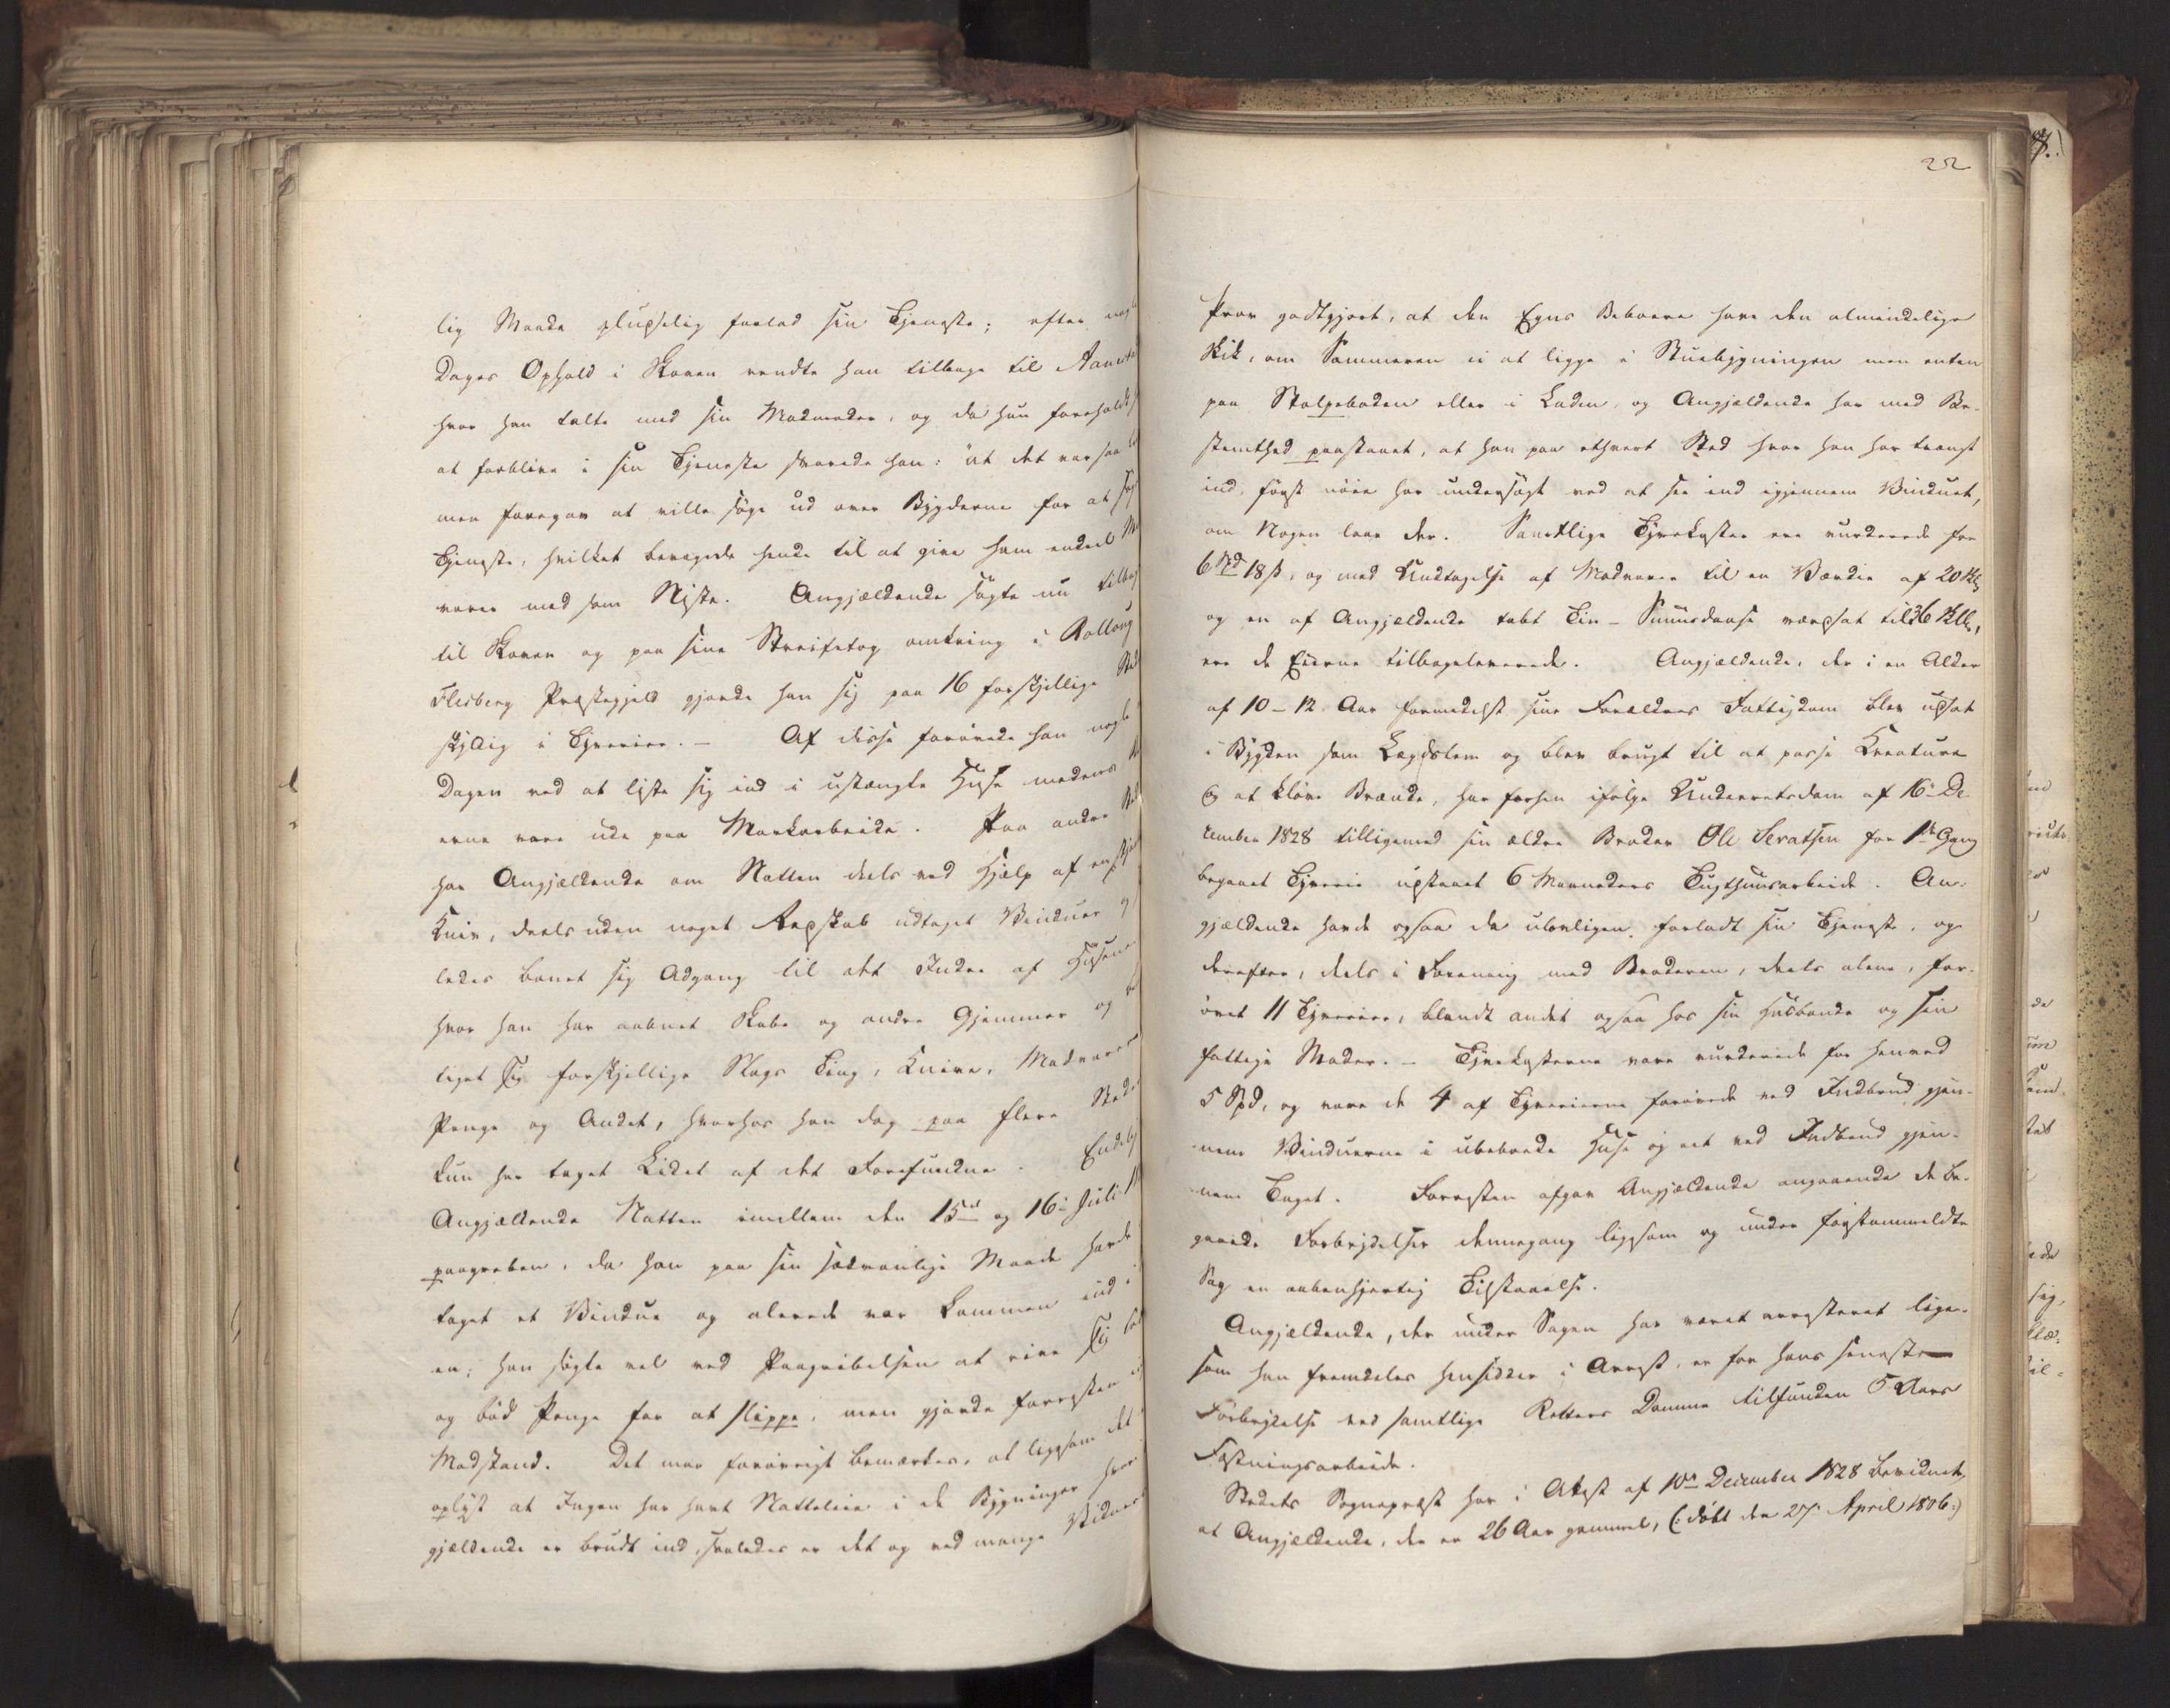 lig Maade pludselig forlod sin Tjeneste; efter nogle
Dages Ophold i Skoven vendte han tilbage til
hvor han talte med sin Madmoder, og da hun foreholdt
at forblive i sin Tjeneste svarede han: "at det var saa
men foregav at ville søge ud over Bygderne for at søge
Tjeneste, hvilket bevægede hende til at give ham endeel
varer med som Niste. Angjældende søgte nu tilbage
til Skoven og paa sine Streifetog omkring i Rollaug
Flesberg Præstegjeld gjorde han sig paa 16 forskjellige
skyldig i Tyverier. — Af disse forøvede han nogle
Dagen ved at liste sig ind i ustængte Huse medens
erne vare ude paa Markarbeide. Paa andre
har Angjældende om Natten deels ved Hjælp af en
Kniv, deels uden noget Redskab udtaget Vinduer
ledes banet sig Adgang til det Indre af Husene
hvor han har aabnet Skabe og andre Gjemmer og
taget sig forskjellige Slags Ting, Knive, Madvarer
Penge og Andet, hvorhos han dog paa flere Steder
kun har taget Lidet af det Forefundne. Endelig
Angjældende Natten imellem den 15de og 16de Juli
paagreben, da han paa sin sædvanlige Maade havde
taget et Vindue og alerede var kommen ind i
en; han søgte vel ved Paagribelsen at rive sig
og bød Penge for at slippe, men gjorde forresten
Modstand. Det maa forøvrigt bemærkes, at ligesom det
oplyst at Ingen har havt Natteleie i de Bygninger hvor
gjældende er brudt ind, saaledes er det og ved mange Vidners
22
Prov godtgjort, at den Egns Beboere have den almindelige
Skik, om Sommeren ei at ligge i Stuebygningen men enten
paa Stolpeboden eller i Laden, og Angjældende har med Be-
stemthed paastaaet, at han paa ethvert Sted hvor han har trængt
ind, først nøie har undersøgt ved at see ind igjennem Vinduet,
om Nogen laae der. Samtlige Tyvekoster ere vurderede for
6 Spd 18 ß, og med Undtagelse af Madvarer til en Værdie af 20 ß
og en af Angjældende tabt Tin-Snuusdaase værdsat til 36 ß,
ere de Eierne tilbageleverede. Angjældende, der i en Alder
af 10-12 Aar formedelst sine Forældres Fattigdom blev udsat
i Bygden som Lægdslem og blev brugt til at passe Kreature
og at kløve Brænde, har forhen ifølge Underretsdom af 16de De-
cember 1828 tilligemed sin ældre Broder Ole Seratsen for 1ste Gang
begaaet Tyverie udstaaet 6 Maaneders Tugthuusarbeide. An-
gjældende havde ogsaa da ulovligen forladt sin Tjeneste, og
derefter, deels i Forening med Broderen, deels alene, for-
øvet 11 Tyverier, blandt andet ogsaa hos sin Husbonde og sin
fattige Moder. — Tyvekosterne vare vurderede for henved
5 Spd, og vare de 4 af Tyverierne forøvede ved Indbrud gjen-
nem Vinduerne i ubeboede Huse og eet ved Indbrud gjen-
nem Taget. Forresten afgav Angjældende angaaende de be-
gaaede Forbrydelser dennegang ligesom og under førstommeldte
Sag en aabenhjertig Tilstaaelse.
Angjældende, der under Sagen har været arresteret lige-
som han fremdeles hensidder i Arrest, er for hans seneste
Forbrydelse ved samtlige Retters Domme tilfunden 5 Aars
Fæstningsarbeide.
Stedets Sognepræst har i Attest af 10de December 1828 bevidnet,
at Angjældende, der er 26 Aar gammel, (: døbt den 27de April 1806:)